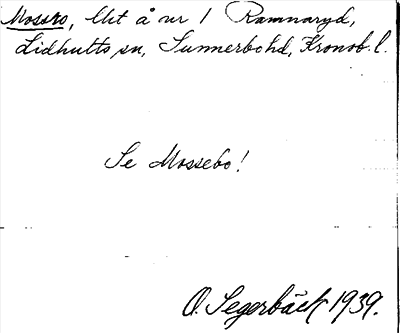 Mossro, lht å nr 1 Ramnaryd,
Lidhults sn, Sunnerbo hd, Kronob. l.
Se Mossebo!
O. Segerbäck 1939.